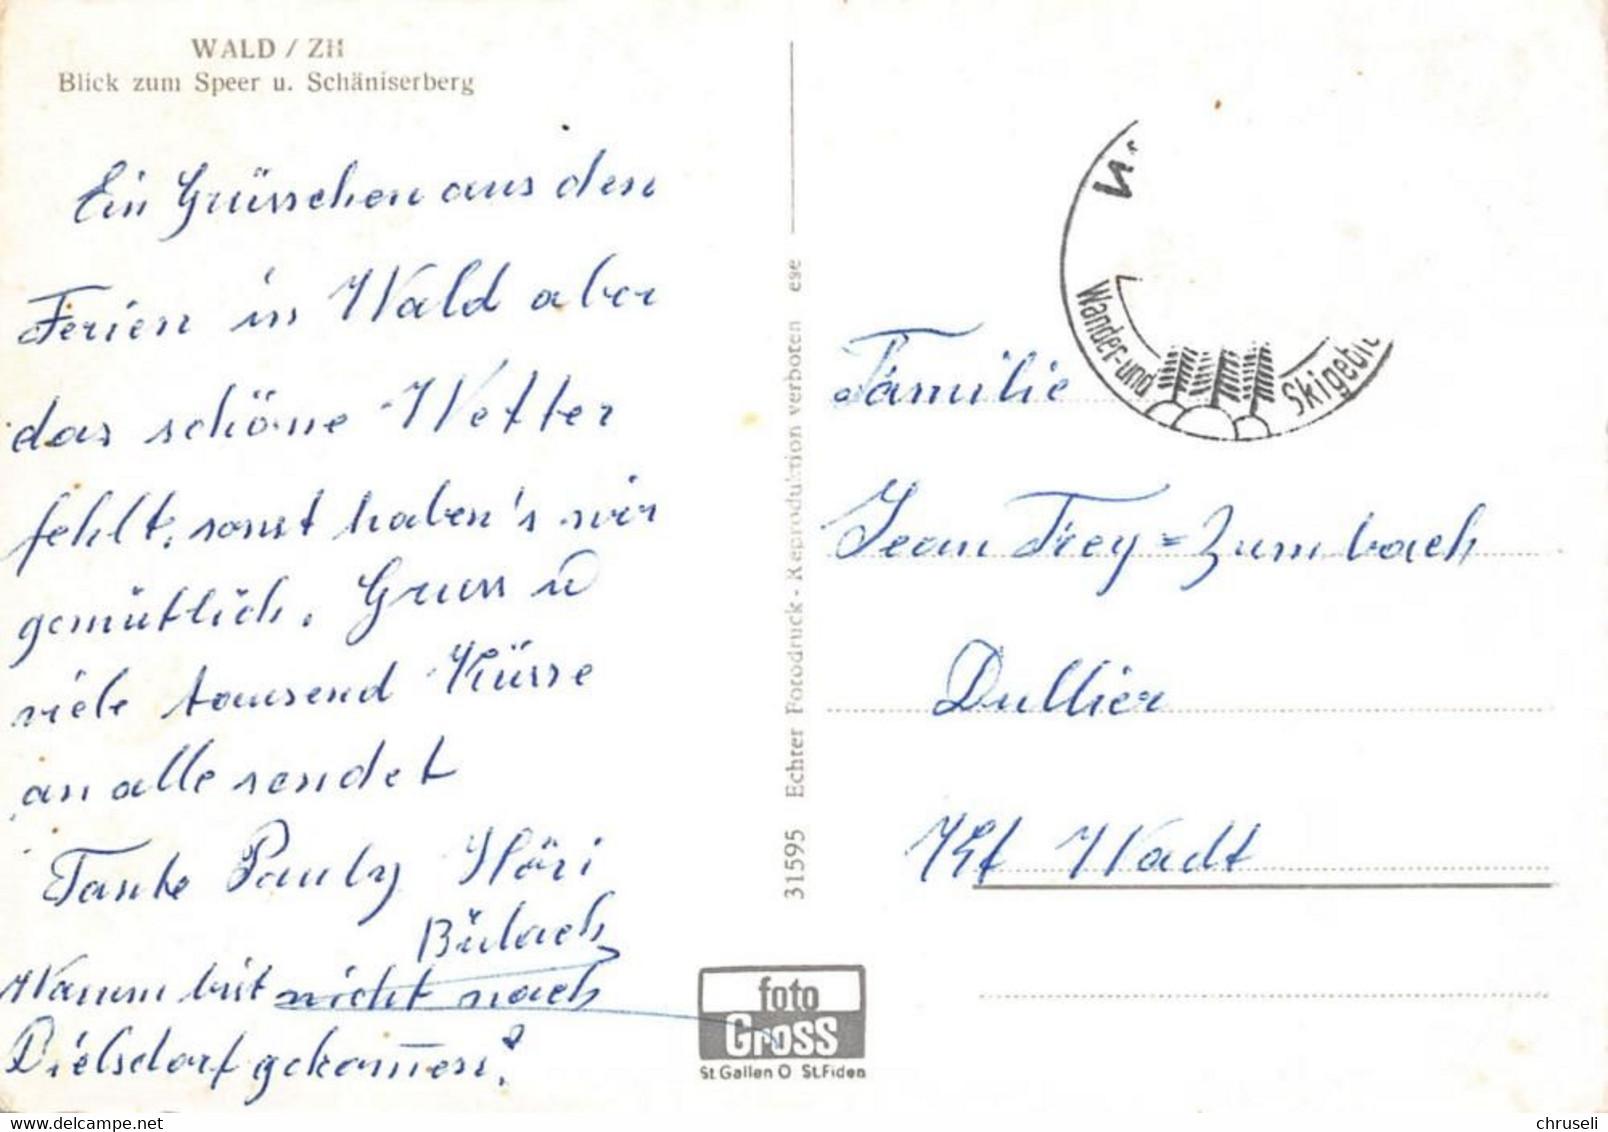 WALD / ZH
Blick zum Speer u. Schäniserberg
Ein Grüsschen aus den
Ferien in Wald aber
das schöne Wetter
fehlt, sonst haben's wir
gemütlich. Gruss u
viele tausend Küsse
an alle sendet
Tante Pauly Höri
Bülach
Warum bist nicht nach
Dielsdorf gekommen?
31595 Echter Fotodruck - Reproduktion verboten ege
Wander-und Skigebie
Familie
Jean Frey=Zumbach
Dullier
Kt Wadt
foto
Gross
St.Gallen O St.Fiden
www.delcampe.net
chruseli